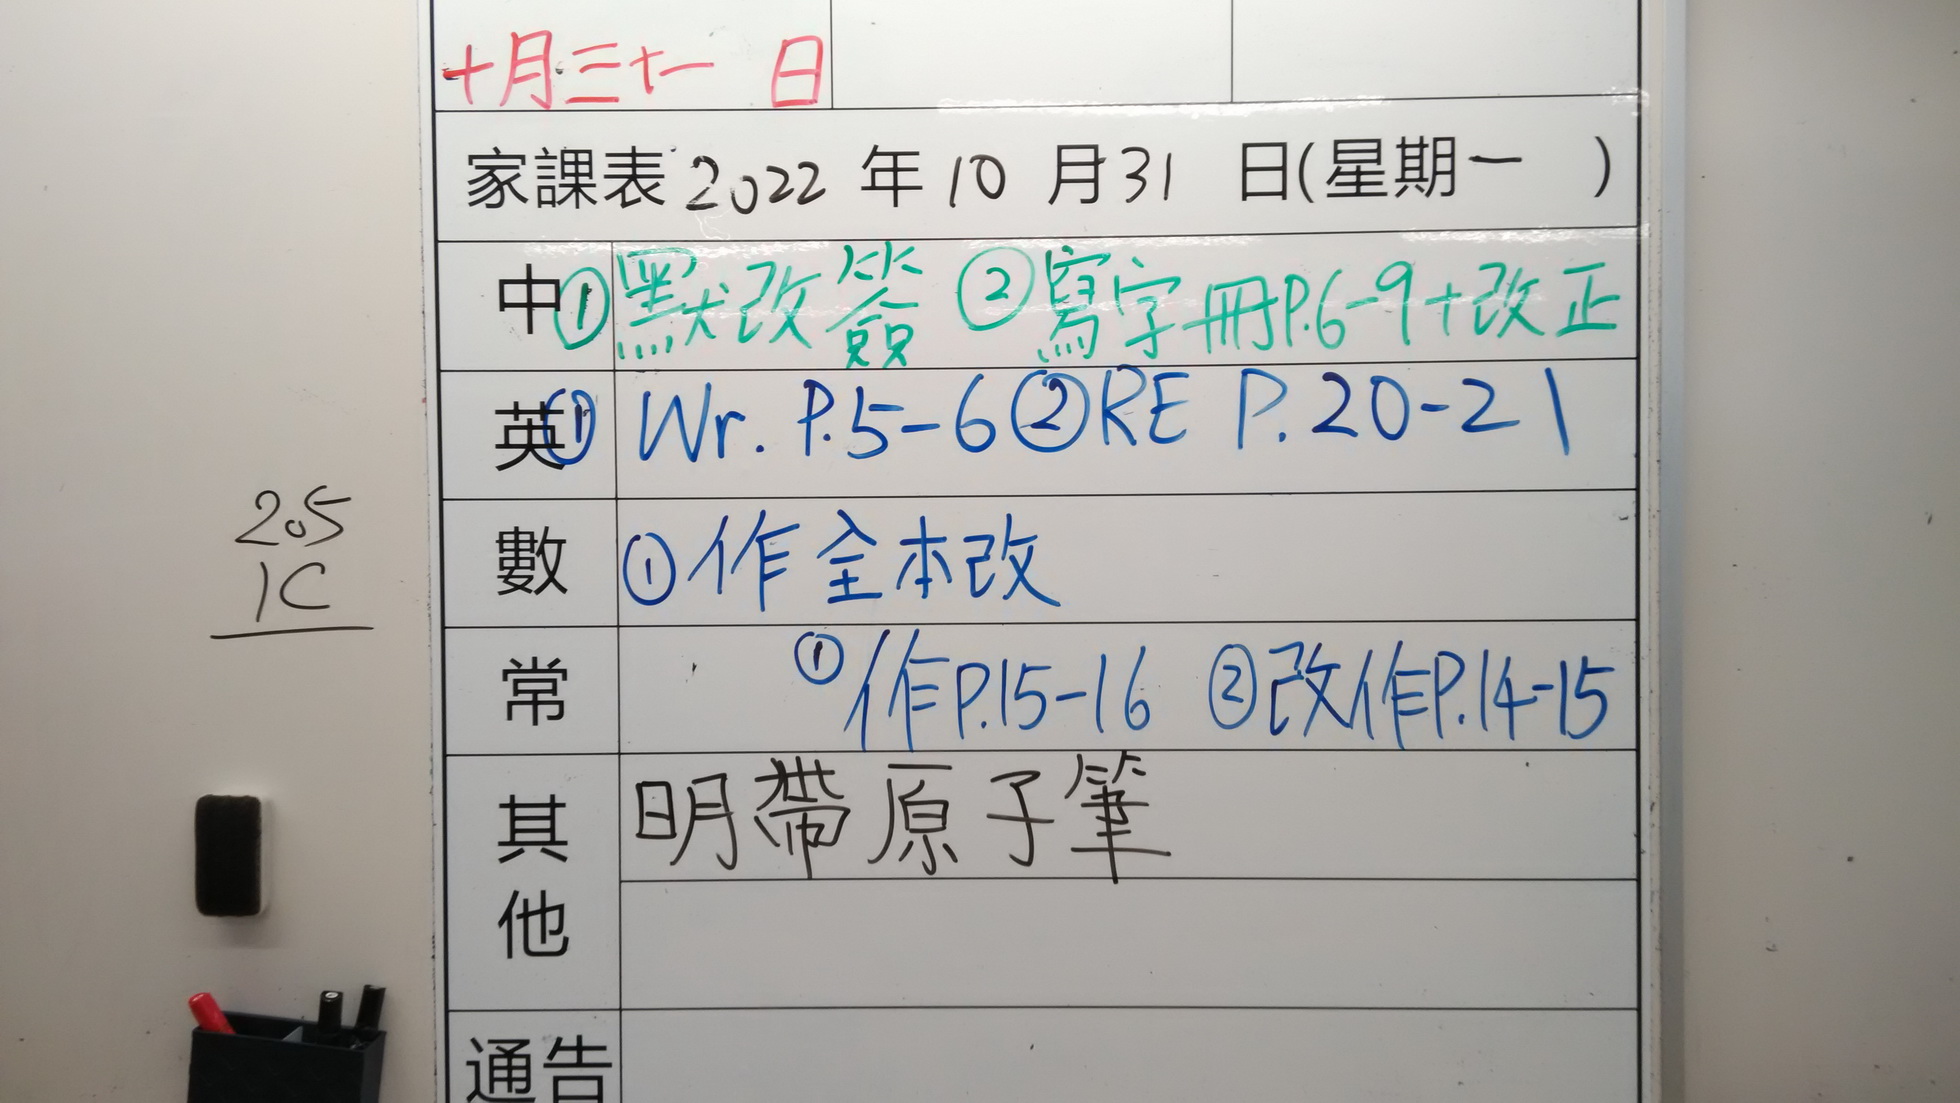 十月三十一日
家課表 2022 年 10 月 31 日(星期一 )
中 ①默改簽 ②寫字冊P.6-9+改正
英 ① Wr. P.5-6 ②RE P.20-21
數 ①作全本改
常 ①作P.15-16 ②改作P.14-15
其他 明帶原子筆
通告
205
1C